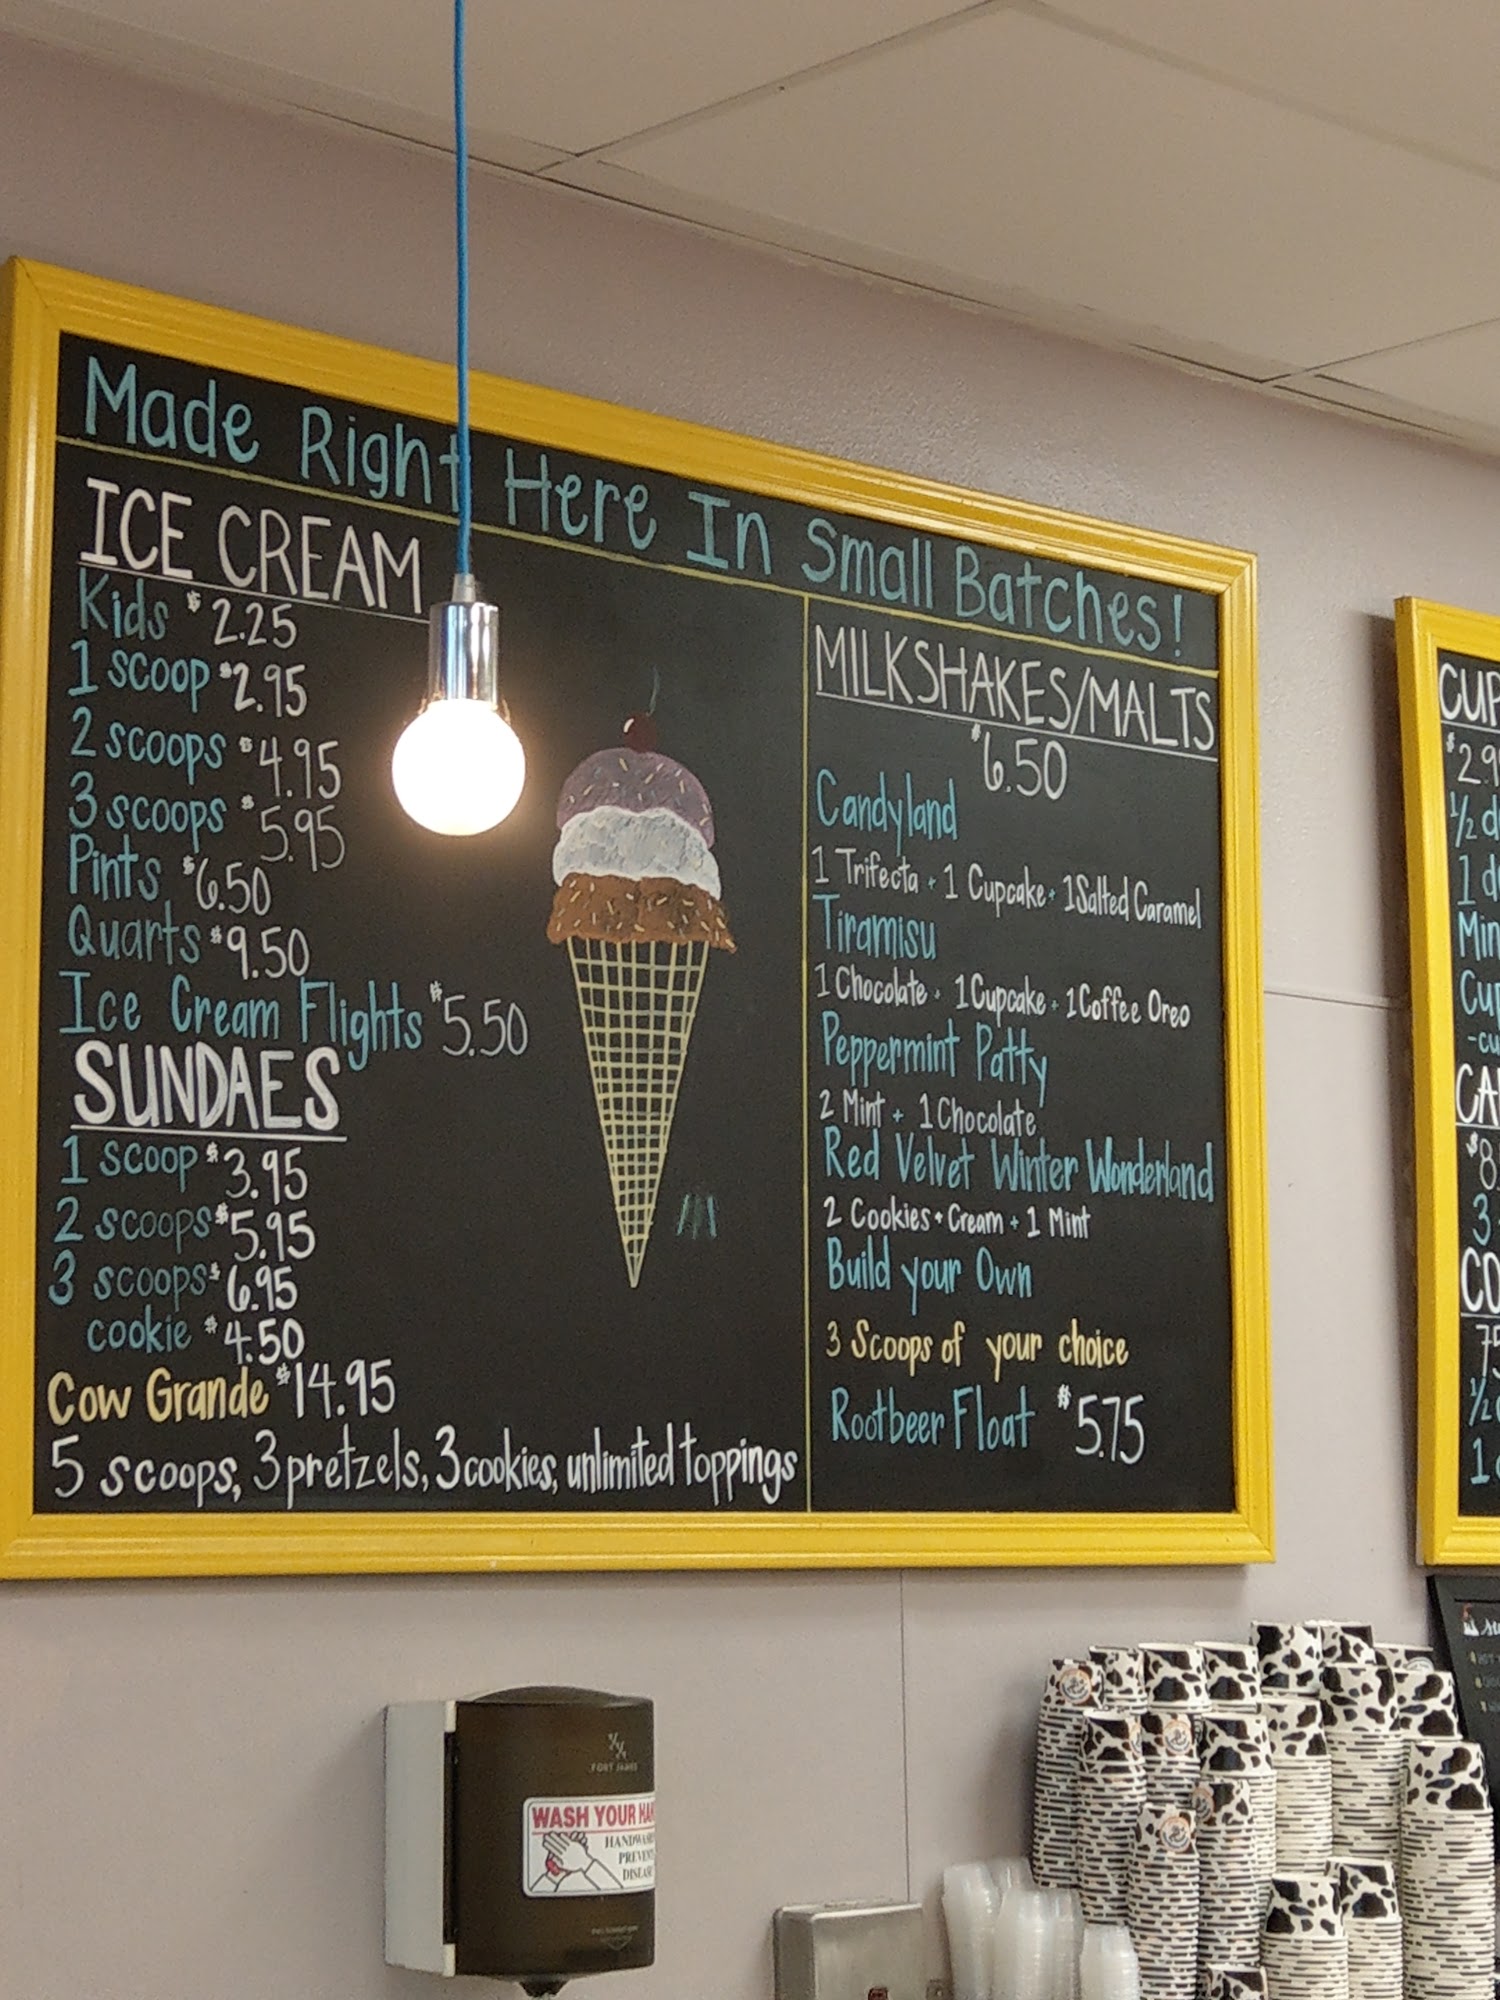 Made Right Here In Small Batches!
ICE CREAM
Kids $2.25
1 scoop $2.95
2 scoops $4.95
3 scoops $5.95
Pints $6.50
Quarts $9.50
Ice Cream Flights $5.50
SUNDAES
1 scoop $3.95
2 scoops $5.95
3 scoops $6.95
cookie $4.50
Cow Grande $14.95
5 scoops, 3 pretzels, 3 cookies, unlimited toppings
MILKSHAKES/MALTS
$6.50
Candyland
1 Trifecta + 1 Cupcake + 1 Salted Caramel
Tiramisu
1 Chocolate + 1 Cupcake + 1 Coffee Oreo
Peppermint Patty
2 Mint + 1 Chocolate
Red Velvet Winter Wonderland
2 Cookies + Cream + 1 Mint
Build your Own
3 Scoops of your choice
Rootbeer Float $5.75
CUP
$2.9
1/2 d
1 d
Min
Cup
-cu
CA
$8.
3
CO
75
1/2
1
FORT JAMES
WASH YOUR HAN
HANDWASH
PREVENTS
DISEASE